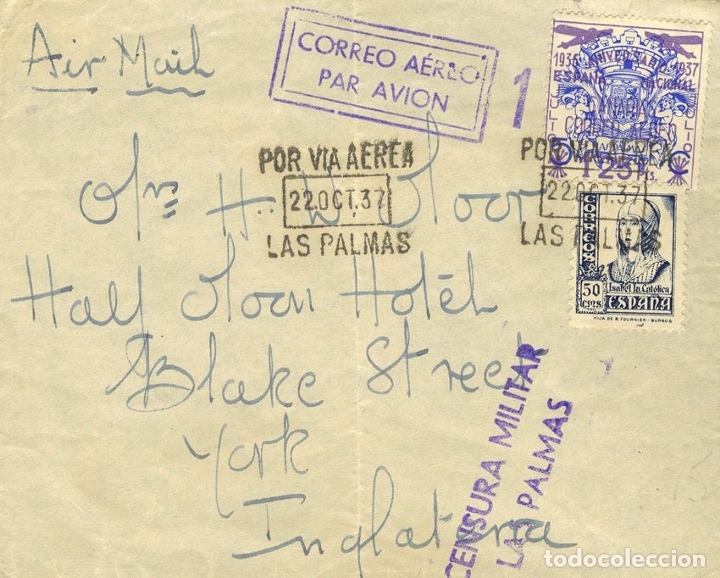 Air Mail
CORREO AÉREO
PAR AVION
1
1936 ANIVERSARIO 1937
ESPAÑA NACIONAL
CORREO AEREO
1'25 Pts.
POR VIA AEREA
22.OCT.37
LAS PALMAS
POR VIA AEREA
22.OCT.37
LAS PALMAS
CORREOS
50
CTS
Isabel la Católica
ESPAÑA
HIJA DE B. FOURNIER - BURGOS
H. W.
Half Moon Hotel
Blake Street
York
Inglaterra
CENSURA MILITAR
LAS PALMAS
todocoleccion